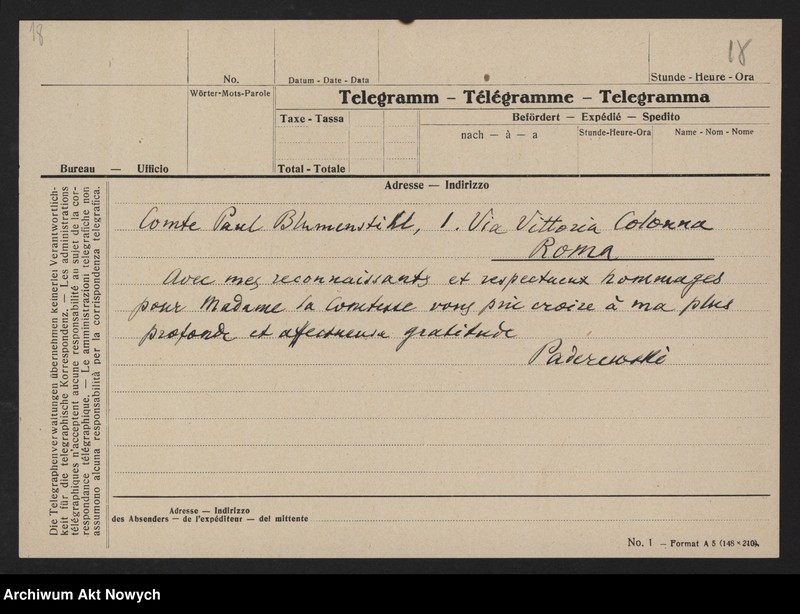 18
18
No.
Datum - Date - Data
Stunde - Heure - Ora
Wörter-Mots-Parole
Telegramm – Télégramme – Telegramma
Taxe - Tassa
Befördert — Expédié — Spedito
nach — à — a
Stunde-Heure-Ora
Name - Nom - Nome
Total - Totale
Bureau — Ufficio
Adresse — Indirizzo
Comte Paul Blumenstihl, 1. Via Vittoria Colonna
Roma
Avec mes reconnaissants et respectueux hommages
pour Madame la Comtesse vous prie croire à ma plus
profonde et affectueuse gratitude
Paderewski
Die Telegraphenverwaltungen übernehmen keinerlei Verantwortlich-
keit für die telegraphische Korrespondenz. — Les administrations
télégraphiques n'acceptent aucune responsabilité au sujet de la cor-
respondance télégraphique. — Le amministrazioni telegrafiche non
assumono alcuna responsabilità per la corrispondenza telegrafica.
Adresse — Indirizzo
des Absenders — de l'expéditeur — del mittente
No. 1 — Format A 5 (148 × 210).
Archiwum Akt Nowych